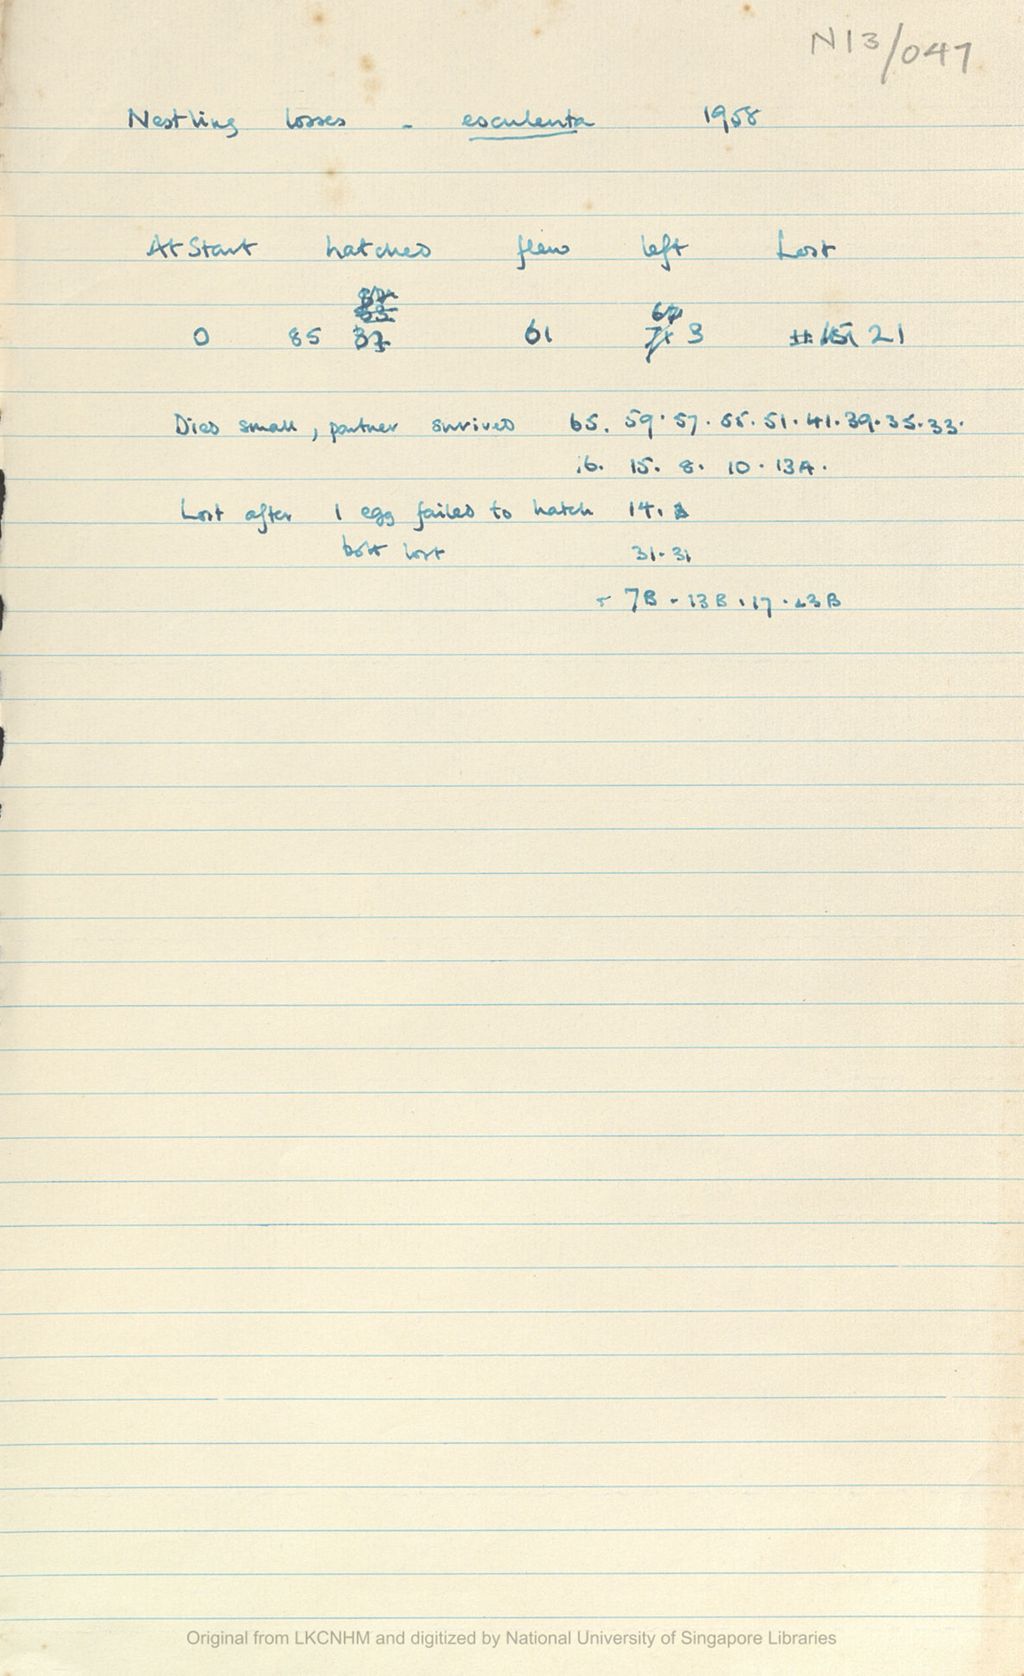 N13/047
Nestling losses - esculenta 1958
At Start hatched flew left Lost
0 85 61 3 21
Died small, partner survived 65. 59. 57. 55. 51. 41. 39. 35. 33.
16. 15. 8. 10. 13A.
Lost after 1 egg failed to hatch 14.
both lost 31. 31
7B - 13B . 17 . 23B
Original from LKCNHM and digitized by National University of Singapore Libraries